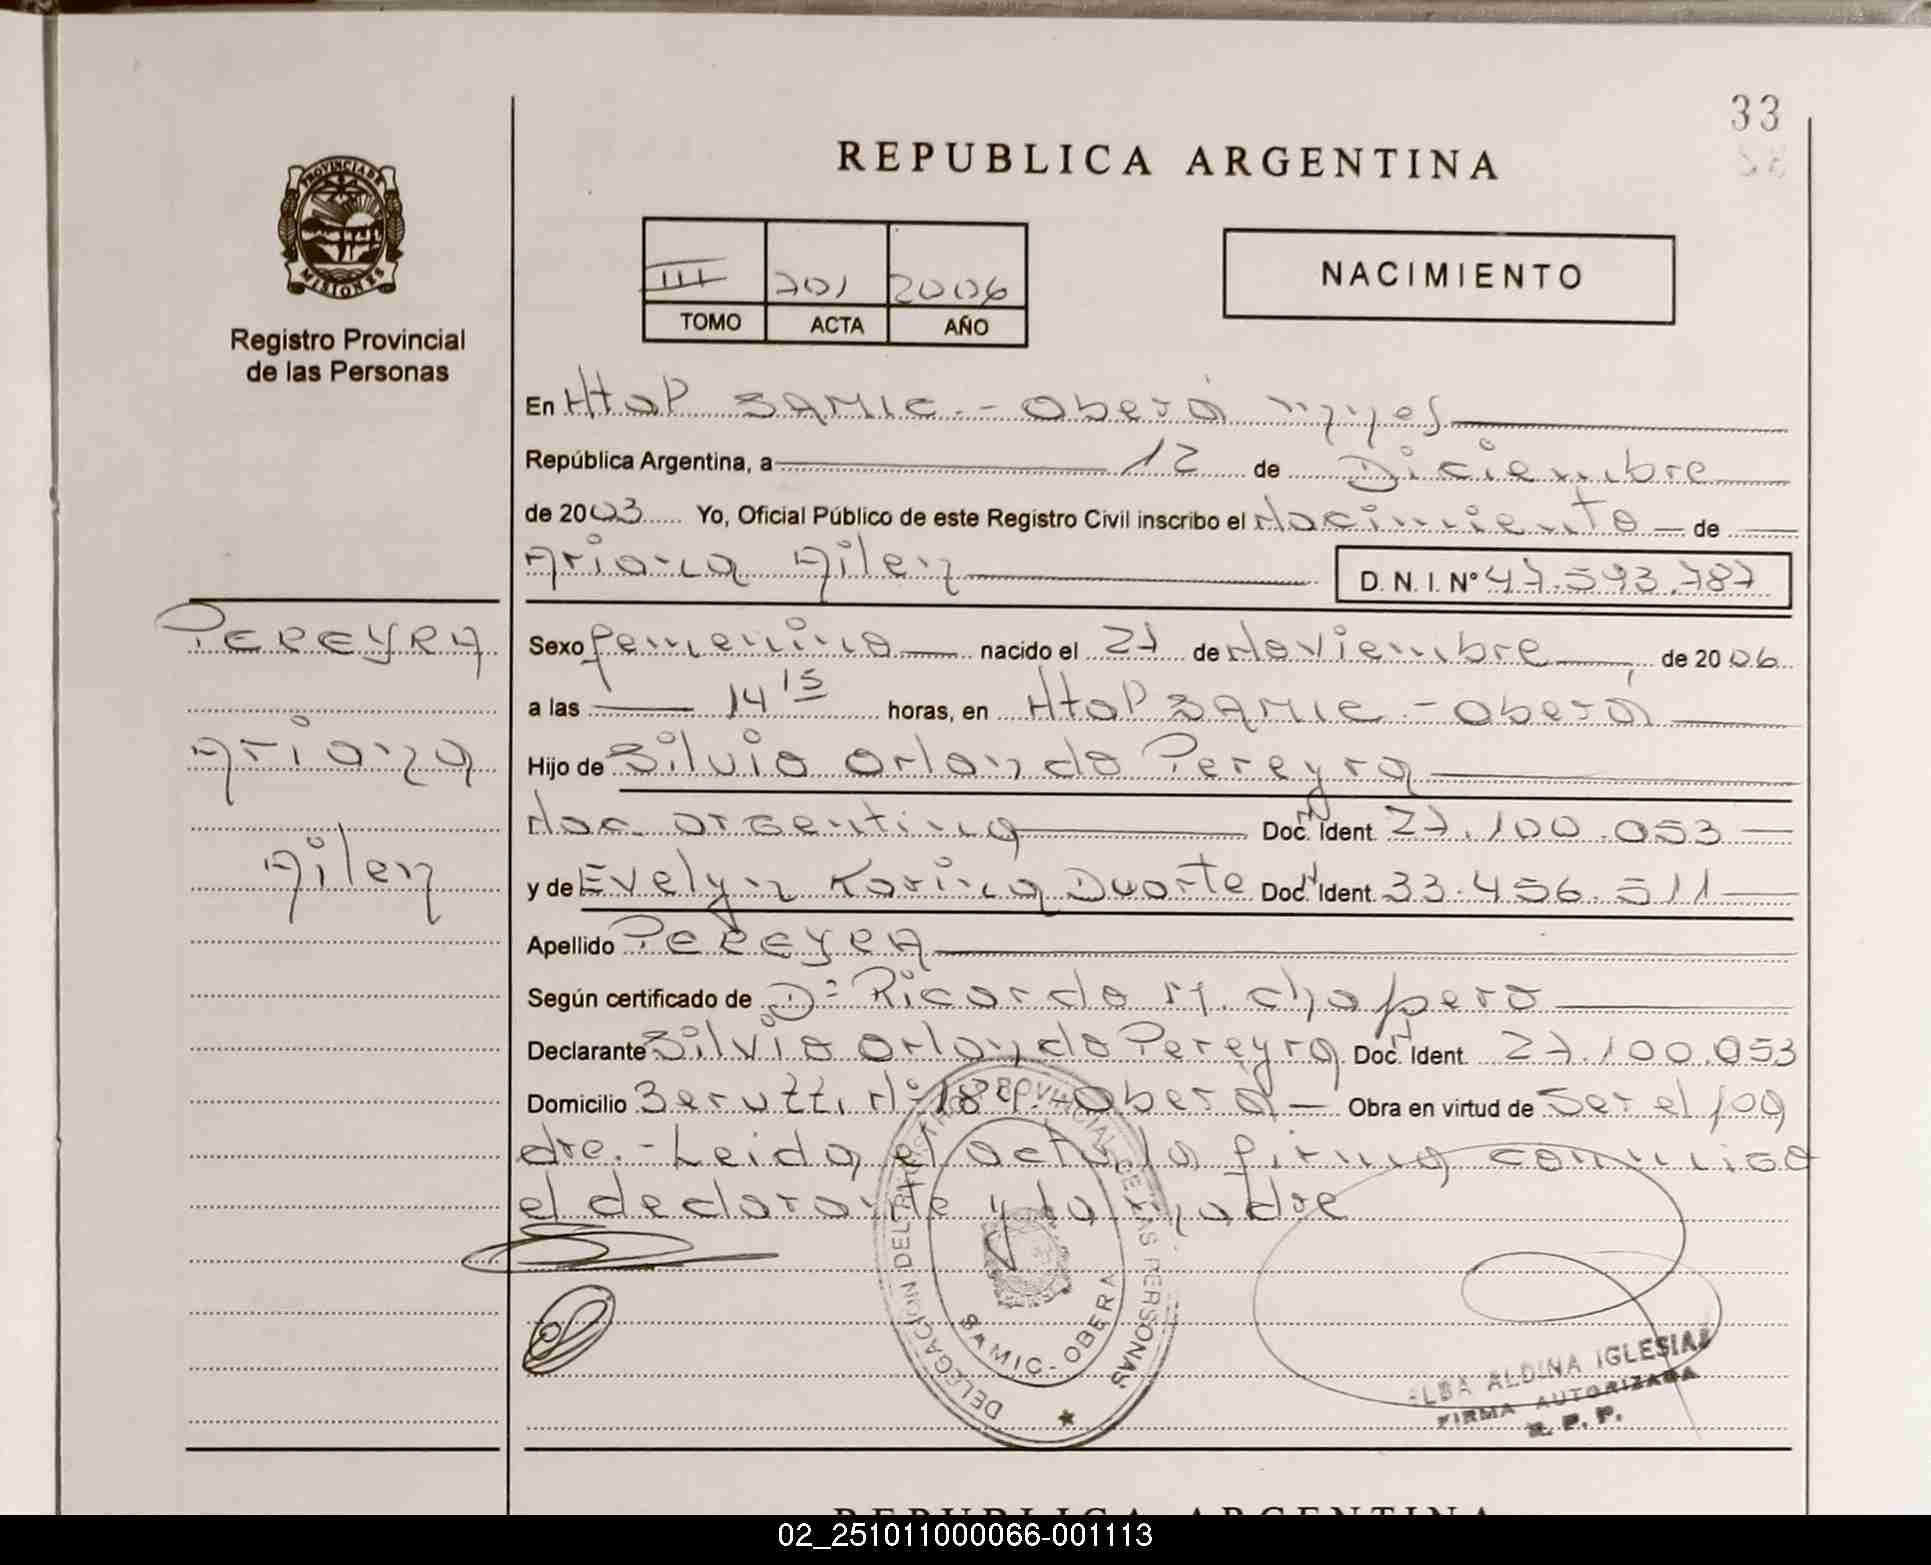 33
REPUBLICA ARGENTINA
PROVINCIA DE MISIONES
Registro Provincial
de las Personas
III 201 2006
TOMO ACTA AÑO
NACIMIENTO
En Htap SAMIC.- Oberá
República Argentina, a 12 de Diciembre
de 2003 Yo, Oficial Público de este Registro Civil inscribo el Nacimiento de
Ariana Ailen D. N. I. Nº 47.593.787
PEREYRA
Ariana
Ailen
Sexo femenino nacido el 21 de Noviembre, de 2006
a las 14 15 horas, en Htap SAMIC - Oberá
Hijo de Silvio Orlando Pereyra
Nac. argentina Doc. Ident. 27.100.053
y de Evelyn Karina Duarte Doc. Ident. 33.456.511
Apellido PEREYRA
Según certificado de D: Ricardo M. Chapero
Declarante Silvio Orlando Pereyra Doc. Ident. 27.100.053
Domicilio Berutti Nº Oberá - Obra en virtud de Ser el pa
dre.- Leida el acta la firma conmigo
el declarante y la madre
DELEGACION DEL REGISTRO PROVINCIAL DE LAS PERSONAS
SAMIC - OBERA
ALBA ALDINA IGLESIAS
FIRMA AUTORIZADA
R. P. P.
REPUBLICA ARGENTINA
02_251011000066-001113